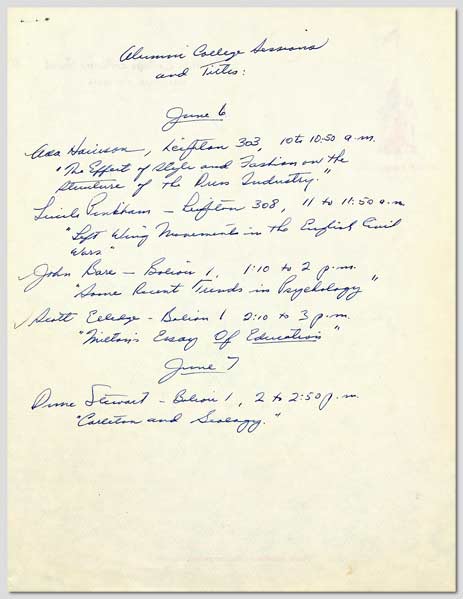 Alumni College Sessions
and Titles:
June 6
Ada Harrison, Leighton 303, 10 to 10:50 a.m.
"The Effect of Style and Fashion on the
Structure of the Dress Industry."
Lucile Pinkham - Leighton 308, 11 to 11:50 a.m
"Left Wing Movements in the English Civil
Wars"
John Bare - Boliou 1, 1:10 to 2 p.m.
"Some Recent Trends in Psychology"
✓ Scott Elledge - Boliou 1 2:10 to 3 p.m.
"Milton's Essay Of Education"
June 7
Duncan Stewart - Boliou 1, 2 to 2:50 p.m.
"Carleton and Geology."